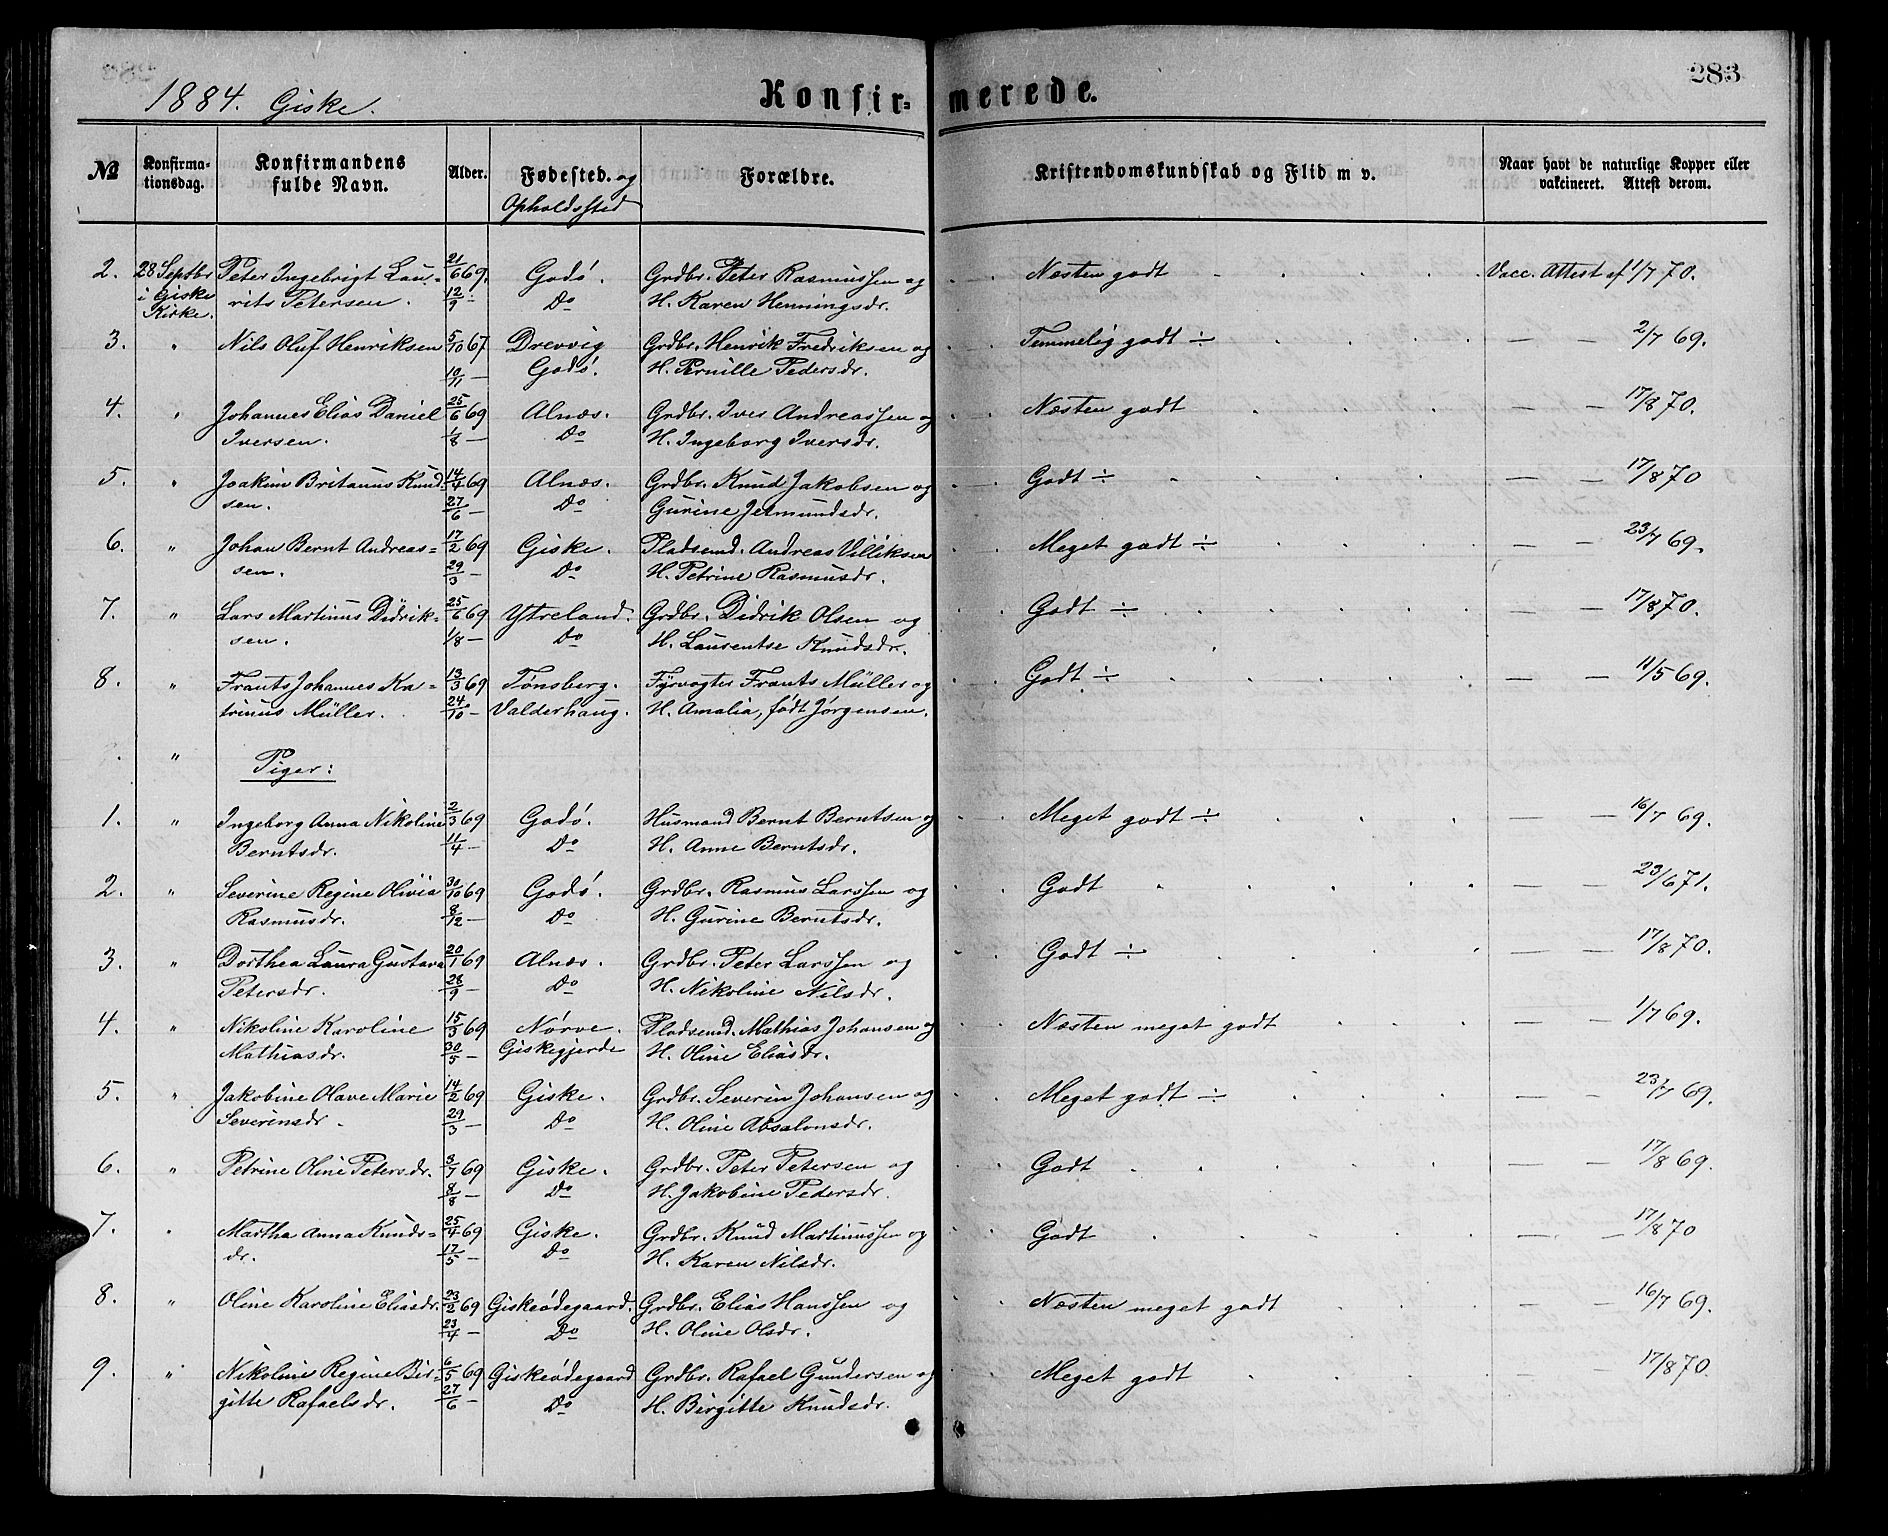 1884. Giske.
Konfir-
merede.
283
№
Konfirma-
tionsdag.
Konfirmandens
fulde Navn.
Alder.
Fødested. og
Opholdssted
Forældre.
Kristendomskundskab og Flid m v.
Naar havt de naturlige Kopper eller
vakcineret. Attest derom.
2. 28 Septbr Peter Ingebrigt Lau- 21/6 69. Godø. Grdbr. Peter Rasmussen og Næsten godt Vacc. Attest af 1/7 70.
i Giske rits Petersen. 12/9 - Do H. Karen Henningsdr.
Kirke.
3. " Nils Oluf Henriksen 5/10 67 Drevvig Grdbr. Henrik Fredriksen og Temmelig godt ÷ — — 2/7 69.
10/11 — Godø. H. Pernille Pedersdr.
4. " Johannes Elias Daniel 25/6 69 Alnæs. Grdbr. Iver Andreassen og Næsten godt — — 17/8 70.
Iversen. 1/8 — Do H. Ingeborg Iversdr.
5. " Joakim Britanus Knud- 14/4 69 Alnæs. Grdbr. Knud Jakobsen og Godt ÷ — — 17/8 70
sen. 27/6 — Do Gurine Jetmundsdr.
6. " Johan Bernt Andreas= 17/2 69 Giske. Pladsemd. Andreas Villiksen Meget godt ÷ — — 23/7 69.
sen. 29/3 — Do H. Petrine Rasmusdr.
7. " Lars Martinus Didrik= 25/6 69 Ytreland. Grdbr. Didrik Olsen og Godt ÷ — — 17/8 70.
sen. 1/8 — Do H. Laurentse Knudsdr.
8. " Frants Johannes Ka= 13/3 69 Tønsberg. Fyrvogter Frants Müller og Godt ÷ — — 11/5 69.
trinus Müller. 24/10 — Valderhaug. H. Amalia, født Jørgensen.
" Piger:
1. " Ingeborg Anna Nikoline 2/3 69 Godø. Husmand Bernt Berntsen og Meget godt ÷ — — 16/7 69.
Berntsdr. 11/4 — Do H. Anne Berntsdr.
2. " Severine Regine Olivia 30/10 69 Godø. Grdbr. Rasmus Larssen og Godt — — 23/6 71.
Rasmusdr. 8/12 — Do H. Gurine Berntsdr.
3. " Dorthea Laura Gustava 20/1 69 Alnæs. Grdbr. Peter Larssen og Godt ÷ — — 17/8 70.
Petersdr. 28/9 — Do H. Nikoline Nilsdr.
4. " Nikoline Karoline 15/3 69 Nørve. Pladsemd. Mathias Johansen og Næsten meget godt — — 1/7 69.
Mathiasdr. 30/5 — Giskegjerde H. Oline Eliasdr.
5. " Jakobine Olave Marie 14/2 69 Giske. Grdbr. Severin Johansen og Meget godt ÷ — — 23/7 69.
Severinsdr. 29/3 — Do H. Oline Absalonsdr.
6. " Petrine Oline Petersdr. 3/7 69 Giske. Grdbr. Peter Petersen og Godt — — 17/8 69.
8/8 — Do H. Jakobine Pedersdr.
7. " Martha Anna Knuds= 25/4 69 Giske. Grdbr. Knud Martinussen og Godt — — 17/8 70
dr. 17/5 — Do H. Karen Nilsdr.
8. " Oline Karoline Eliasdr. 23/2 69 Giskeødegaard. Grdbr. Elias Hanssen og Næsten meget godt — — 16/7 69.
23/4 — Do H. Oline Olsdr.
9. " Nikoline Regine Bir- 6/5 69 Giskeødegaard Grdbr. Rafael Gundersen og Meget godt — 17/8 70.
gitte Rafaelsdr. 27/6 — Do H. Birgitte Knudsdr.